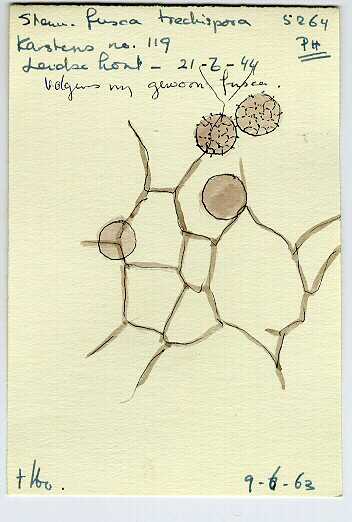 Stem. fusca trechispora 5264
Karstens no. 119 PH
Leidse hout - 21-7-44
Volgens mij gewoon fusca.
9-6-63